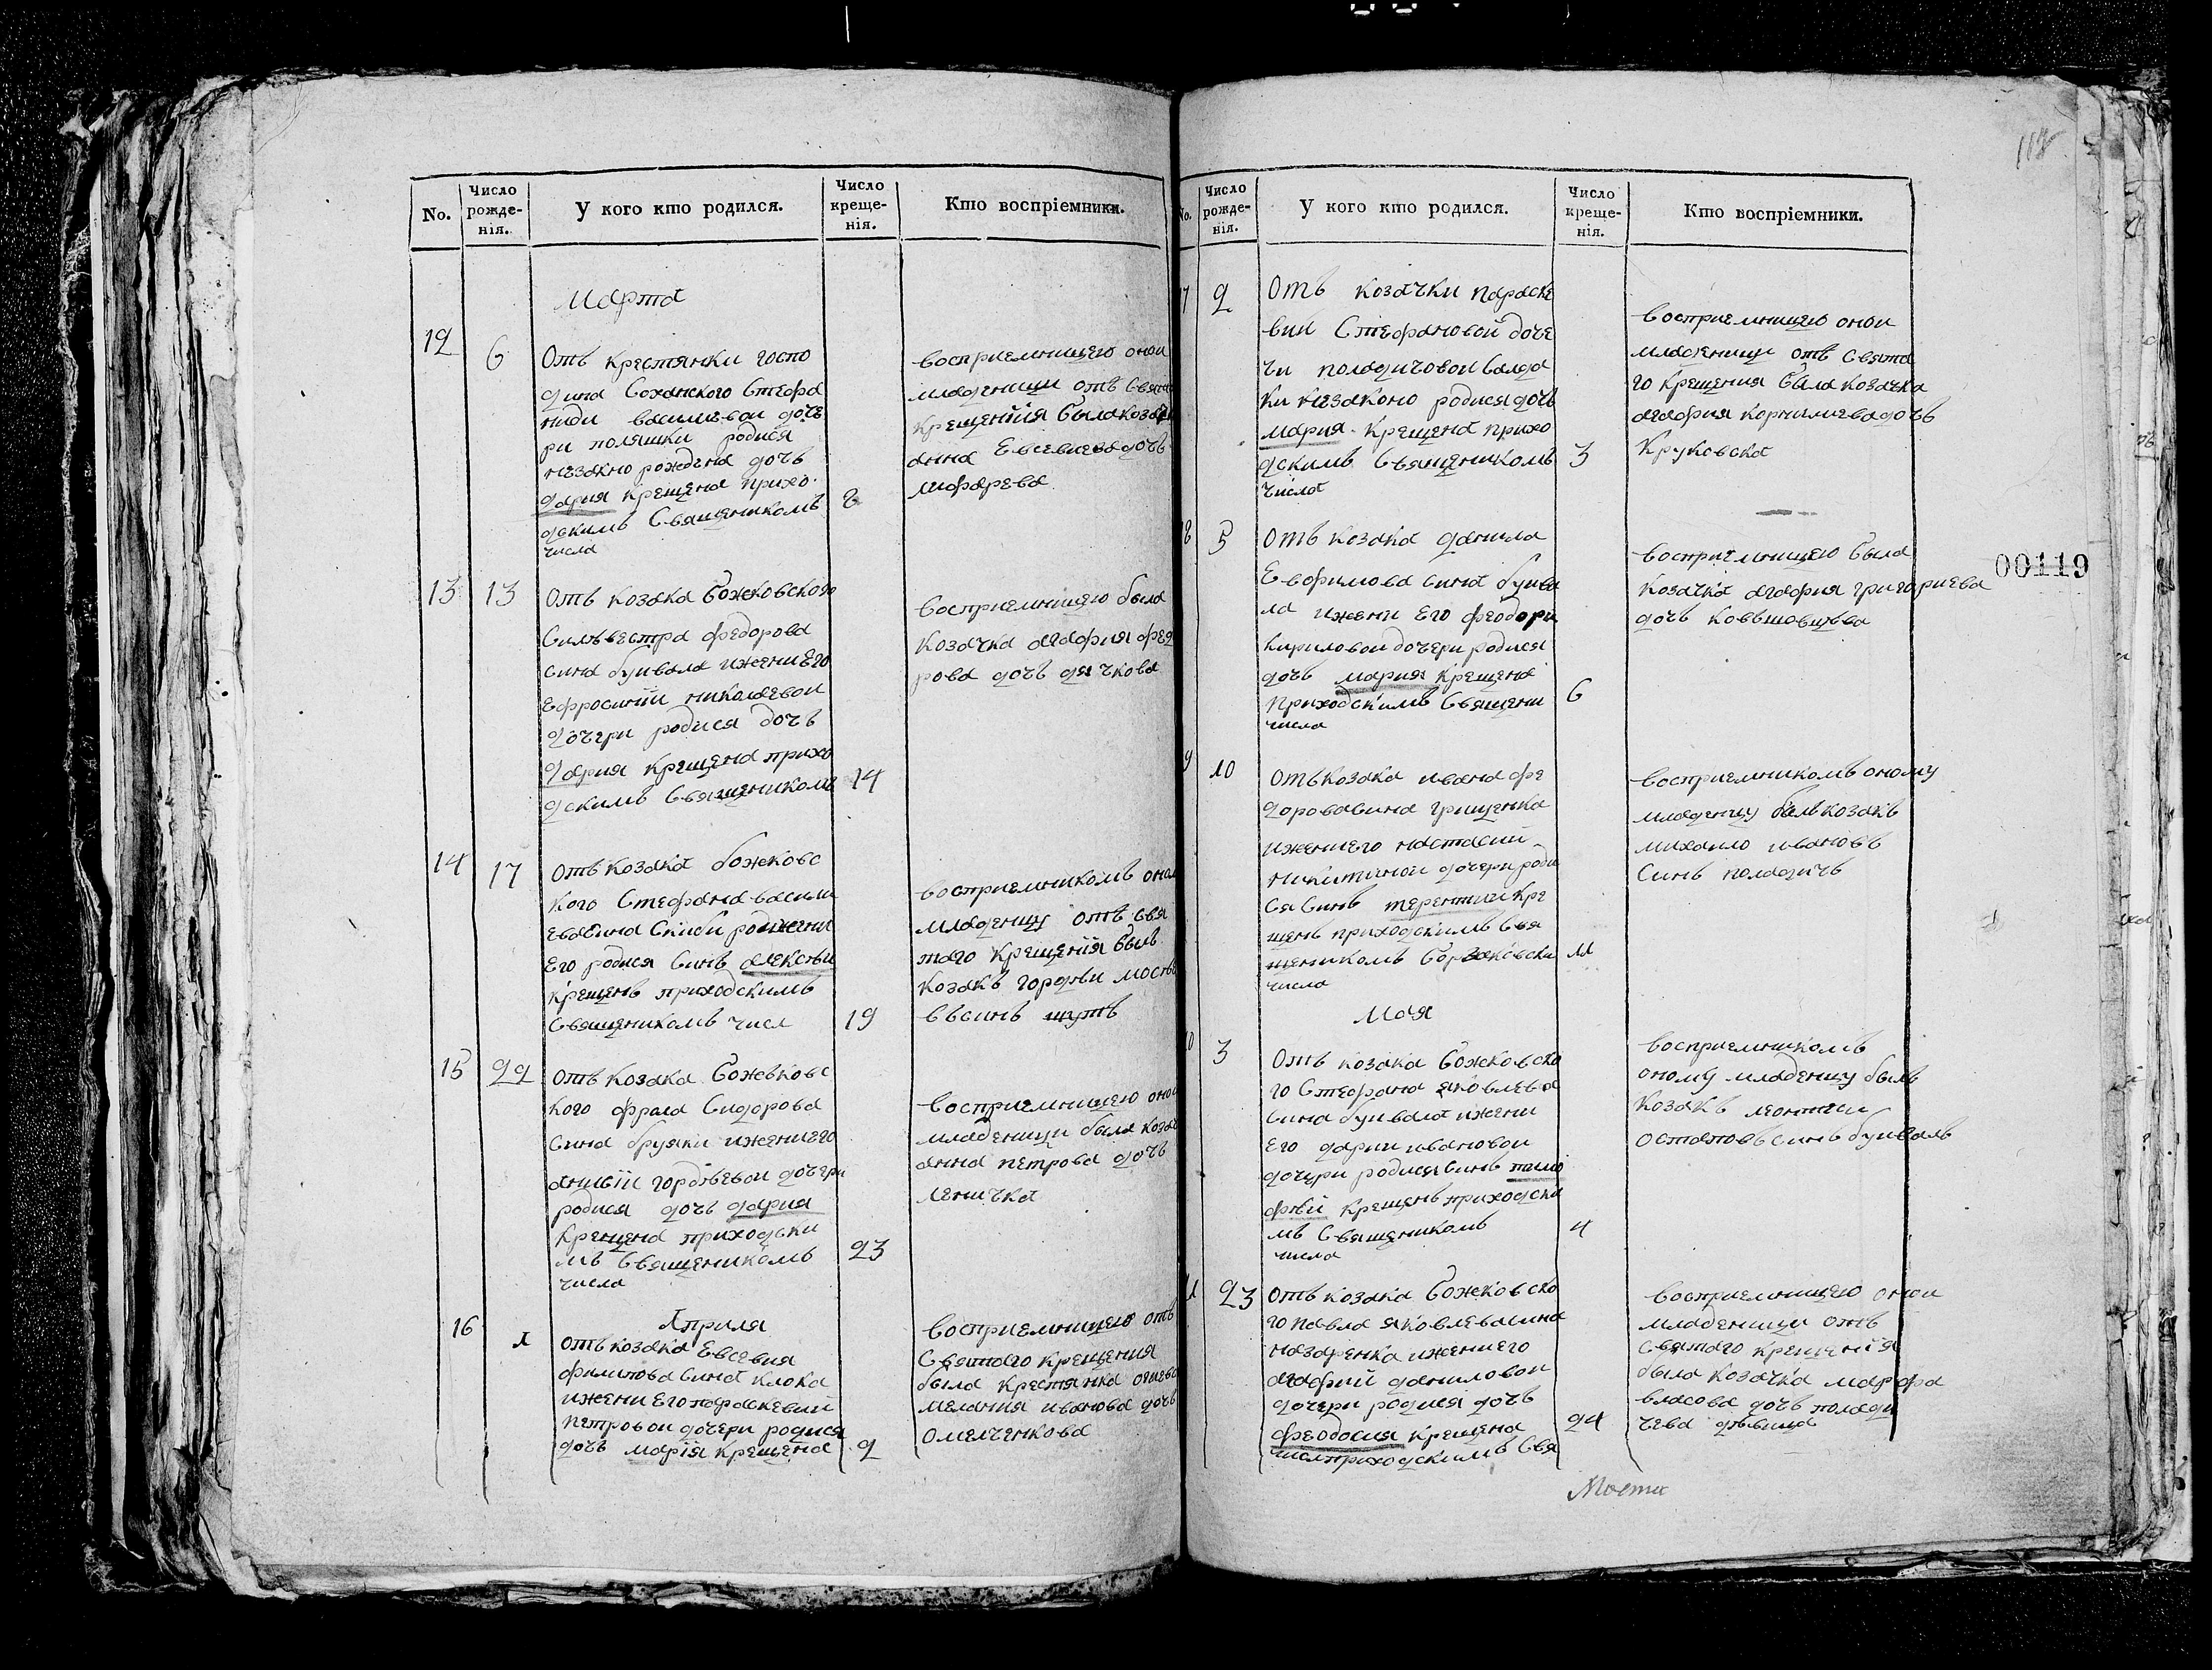 118
No.
Число рожде-нія.
У кого кто родился.
Число креще-нія.
Кто воспріемники.
Марта
12
6
Отъ крестянки госпо
дина Соханского Стефа
ниди василевои доче
ри поляшки родися
незакно рождена дочъ
дария крещена прихо
дскимъ Священикомъ
числа
8
восприемницею оной
младеници отъ Свята
крещенїя была коза
анна Евсевиева дочъ
13
13
Отъ козака Божковского
Сильвестра федорова
сина буивала ижени Его
Ефросинїи николаевои
дочери родися дочъ
дария крещена прихо
дскимъ Священикомъ
14
восприемницею была
козачка агафия фед
рова дочъ дячкова
14
17
отъ козака божковс
кого Стефана васили
Его родися Синъ алексѣи
крещенъ приходскимъ
Священикомъ числ
19
восприемникомъ оном
младенцу отъ Свя
таго крещенїя былъ
козакъ гордѣи
въ синъ шутъ
15
22
отъ козака Божковс
кого фрола Сидорова
Сина бруяки ижени его
гордѣевои дочери
родися дочъ дария
крещена приходски
мъ Священикомъ
числа
23
восприемницею оной
младеници была коза
анна петрова дочъ
леничка
Априля
16
1
отъ козака Евсевия
филипова Сина клока
ижени Его параскевий
петровои дочери родися
дочъ марїя крещена
2
восприемницею отъ
Святаго крещения
была крестянка
мелания иванова дочъ
омелченкова
No.
Число рожде-нія.
У кого кто родился.
Число креще-нія.
Кто воспріемники.
17
2
отъ козачки параске
вии Стефановой доче
ри
ки незаконо родися дочъ
мария крещена прихо
дскимъ Священикомъ
числа
3
восприемницею оной
младеници отъ Свята
го крещения была козачка
агафия корнилиева дочъ
Круковска
18
5
отъ козака данила
Евфимова Сина буива
ла ижени Его феодори
кириловои дочери родися
дочъ мария крещена
приходскимъ Священи
числа
6
восприемницею была
козачка агафия григориева
дочъ
00119
19
10
отъ козака ивана фе
дорова Сина грищенка
ижени его настасии
никитиной дочери роди
ся Синъ терентии кре
щенъ приходскимъ Свя
щеникомъ
числа
11
восприемникомъ оному
младенцу былъ козакъ
михаило ивановъ
Синъ поладичъ
Мая
20
3
отъ козака Божковско
го Стефана яковлева
Сина буивала ижени
Его дарии ивановои
дочери родися Синъ тимо
фѣй крещенъ приходски
мъ Священикомъ
числа
4
восприемникомъ
оному младенцу былъ
козакъ леонтеи
остаповъ синъ буивалъ
21
23
отъ козака Божковско
го павла яковлева сина
назаренка ижени его
агафий даниловои
дочери родися дочъ
феодосия крещена
числ приходскимъ Свя
24
восприемницею оной
младеници отъ
Святаго крещенїя
была козачка марфа
власова дочъ полади
чева дѣвица